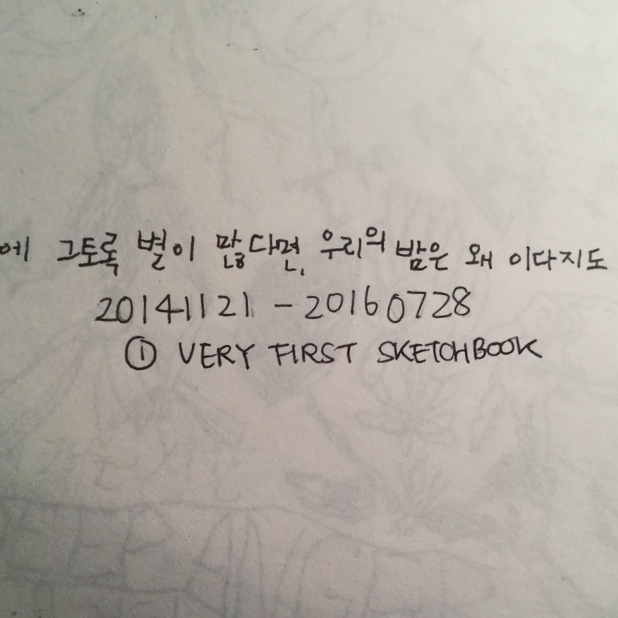 에 그토록 별이 많다면, 우리의 밤은 왜 이다지도
20141121 - 20160728
① VERY FIRST SKETCHBOOK
DEEP ANGER